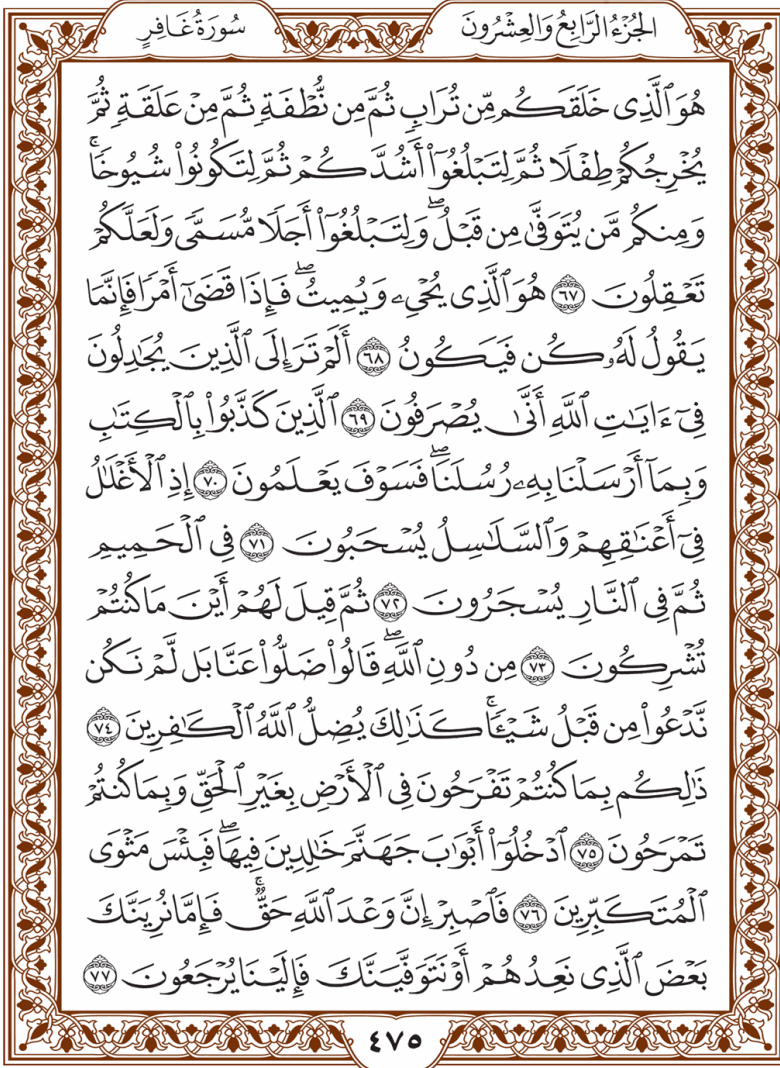 الجُزْءُ الرَّابِعُ وَالعِشْرُونَ سُورَةُ غَافِرٍ
هُوَ ٱلَّذِى خَلَقَكُم مِّن تُرَابٍ ثُمَّ مِن نُّطْفَةٍ ثُمَّ مِنْ عَلَقَةٍ ثُمَّ
يُخْرِجُكُمْ طِفْلًا ثُمَّ لِتَبْلُغُوٓا۟ أَشُدَّكُمْ ثُمَّ لِتَكُونُوا۟ شُيُوخًا ۚ
وَمِنكُم مَّن يُتَوَفَّىٰ مِن قَبْلُ ۖ وَلِتَبْلُغُوٓا۟ أَجَلًا مُّسَمًّى وَلَعَلَّكُمْ
تَعْقِلُونَ ٦٧ هُوَ ٱلَّذِى يُحْىِۦ وَيُمِيتُ ۖ فَإِذَا قَضَىٰٓ أَمْرًا فَإِنَّمَا
يَقُولُ لَهُۥ كُن فَيَكُونُ ٦٨ أَلَمْ تَرَ إِلَى ٱلَّذِينَ يُجَٰدِلُونَ
فِىٓ ءَايَٰتِ ٱللَّهِ أَنَّىٰ يُصْرَفُونَ ٦٩ ٱلَّذِينَ كَذَّبُوا۟ بِٱلْكِتَٰبِ
وَبِمَآ أَرْسَلْنَا بِهِۦ رُسُلَنَا ۖ فَسَوْفَ يَعْلَمُونَ ٧٠ إِذِ ٱلْأَغْلَٰلُ
فِىٓ أَعْنَٰقِهِمْ وَٱلسَّلَٰسِلُ يُسْحَبُونَ ٧١ فِى ٱلْحَمِيمِ
ثُمَّ فِى ٱلنَّارِ يُسْجَرُونَ ٧٢ ثُمَّ قِيلَ لَهُمْ أَيْنَ مَا كُنتُمْ
تُشْرِكُونَ ٧٣ مِن دُونِ ٱللَّهِ ۖ قَالُوا۟ ضَلُّوا۟ عَنَّا بَل لَّمْ نَكُن
نَّدْعُوا۟ مِن قَبْلُ شَيْـًٔا ۚ كَذَٰلِكَ يُضِلُّ ٱللَّهُ ٱلْكَٰفِرِينَ ٧٤
ذَٰلِكُم بِمَا كُنتُمْ تَفْرَحُونَ فِى ٱلْأَرْضِ بِغَيْرِ ٱلْحَقِّ وَبِمَا كُنتُمْ
تَمْرَحُونَ ٧٥ ٱدْخُلُوٓا۟ أَبْوَٰبَ جَهَنَّمَ خَٰلِدِينَ فِيهَا ۖ فَبِئْسَ مَثْوَى
ٱلْمُتَكَبِّرِينَ ٧٦ فَٱصْبِرْ إِنَّ وَعْدَ ٱللَّهِ حَقٌّ ۚ فَإِمَّا نُرِيَنَّكَ
بَعْضَ ٱلَّذِى نَعِدُهُمْ أَوْ نَتَوَفَّيَنَّكَ فَإِلَيْنَا يُرْجَعُونَ ٧٧
٤٧٥